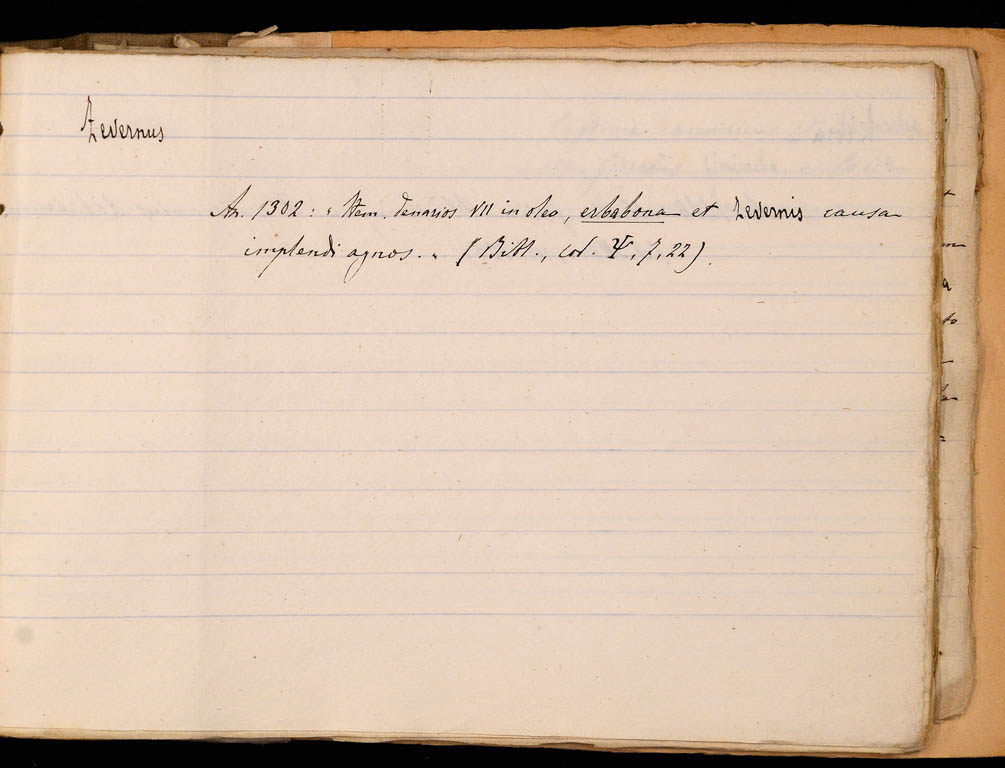 Zevernus
An. 1302: « Item. denarios VII in oleo, erbabona et zevernis causa
implendi agnos. » (Bibl., cod. Ψ, f, 22).